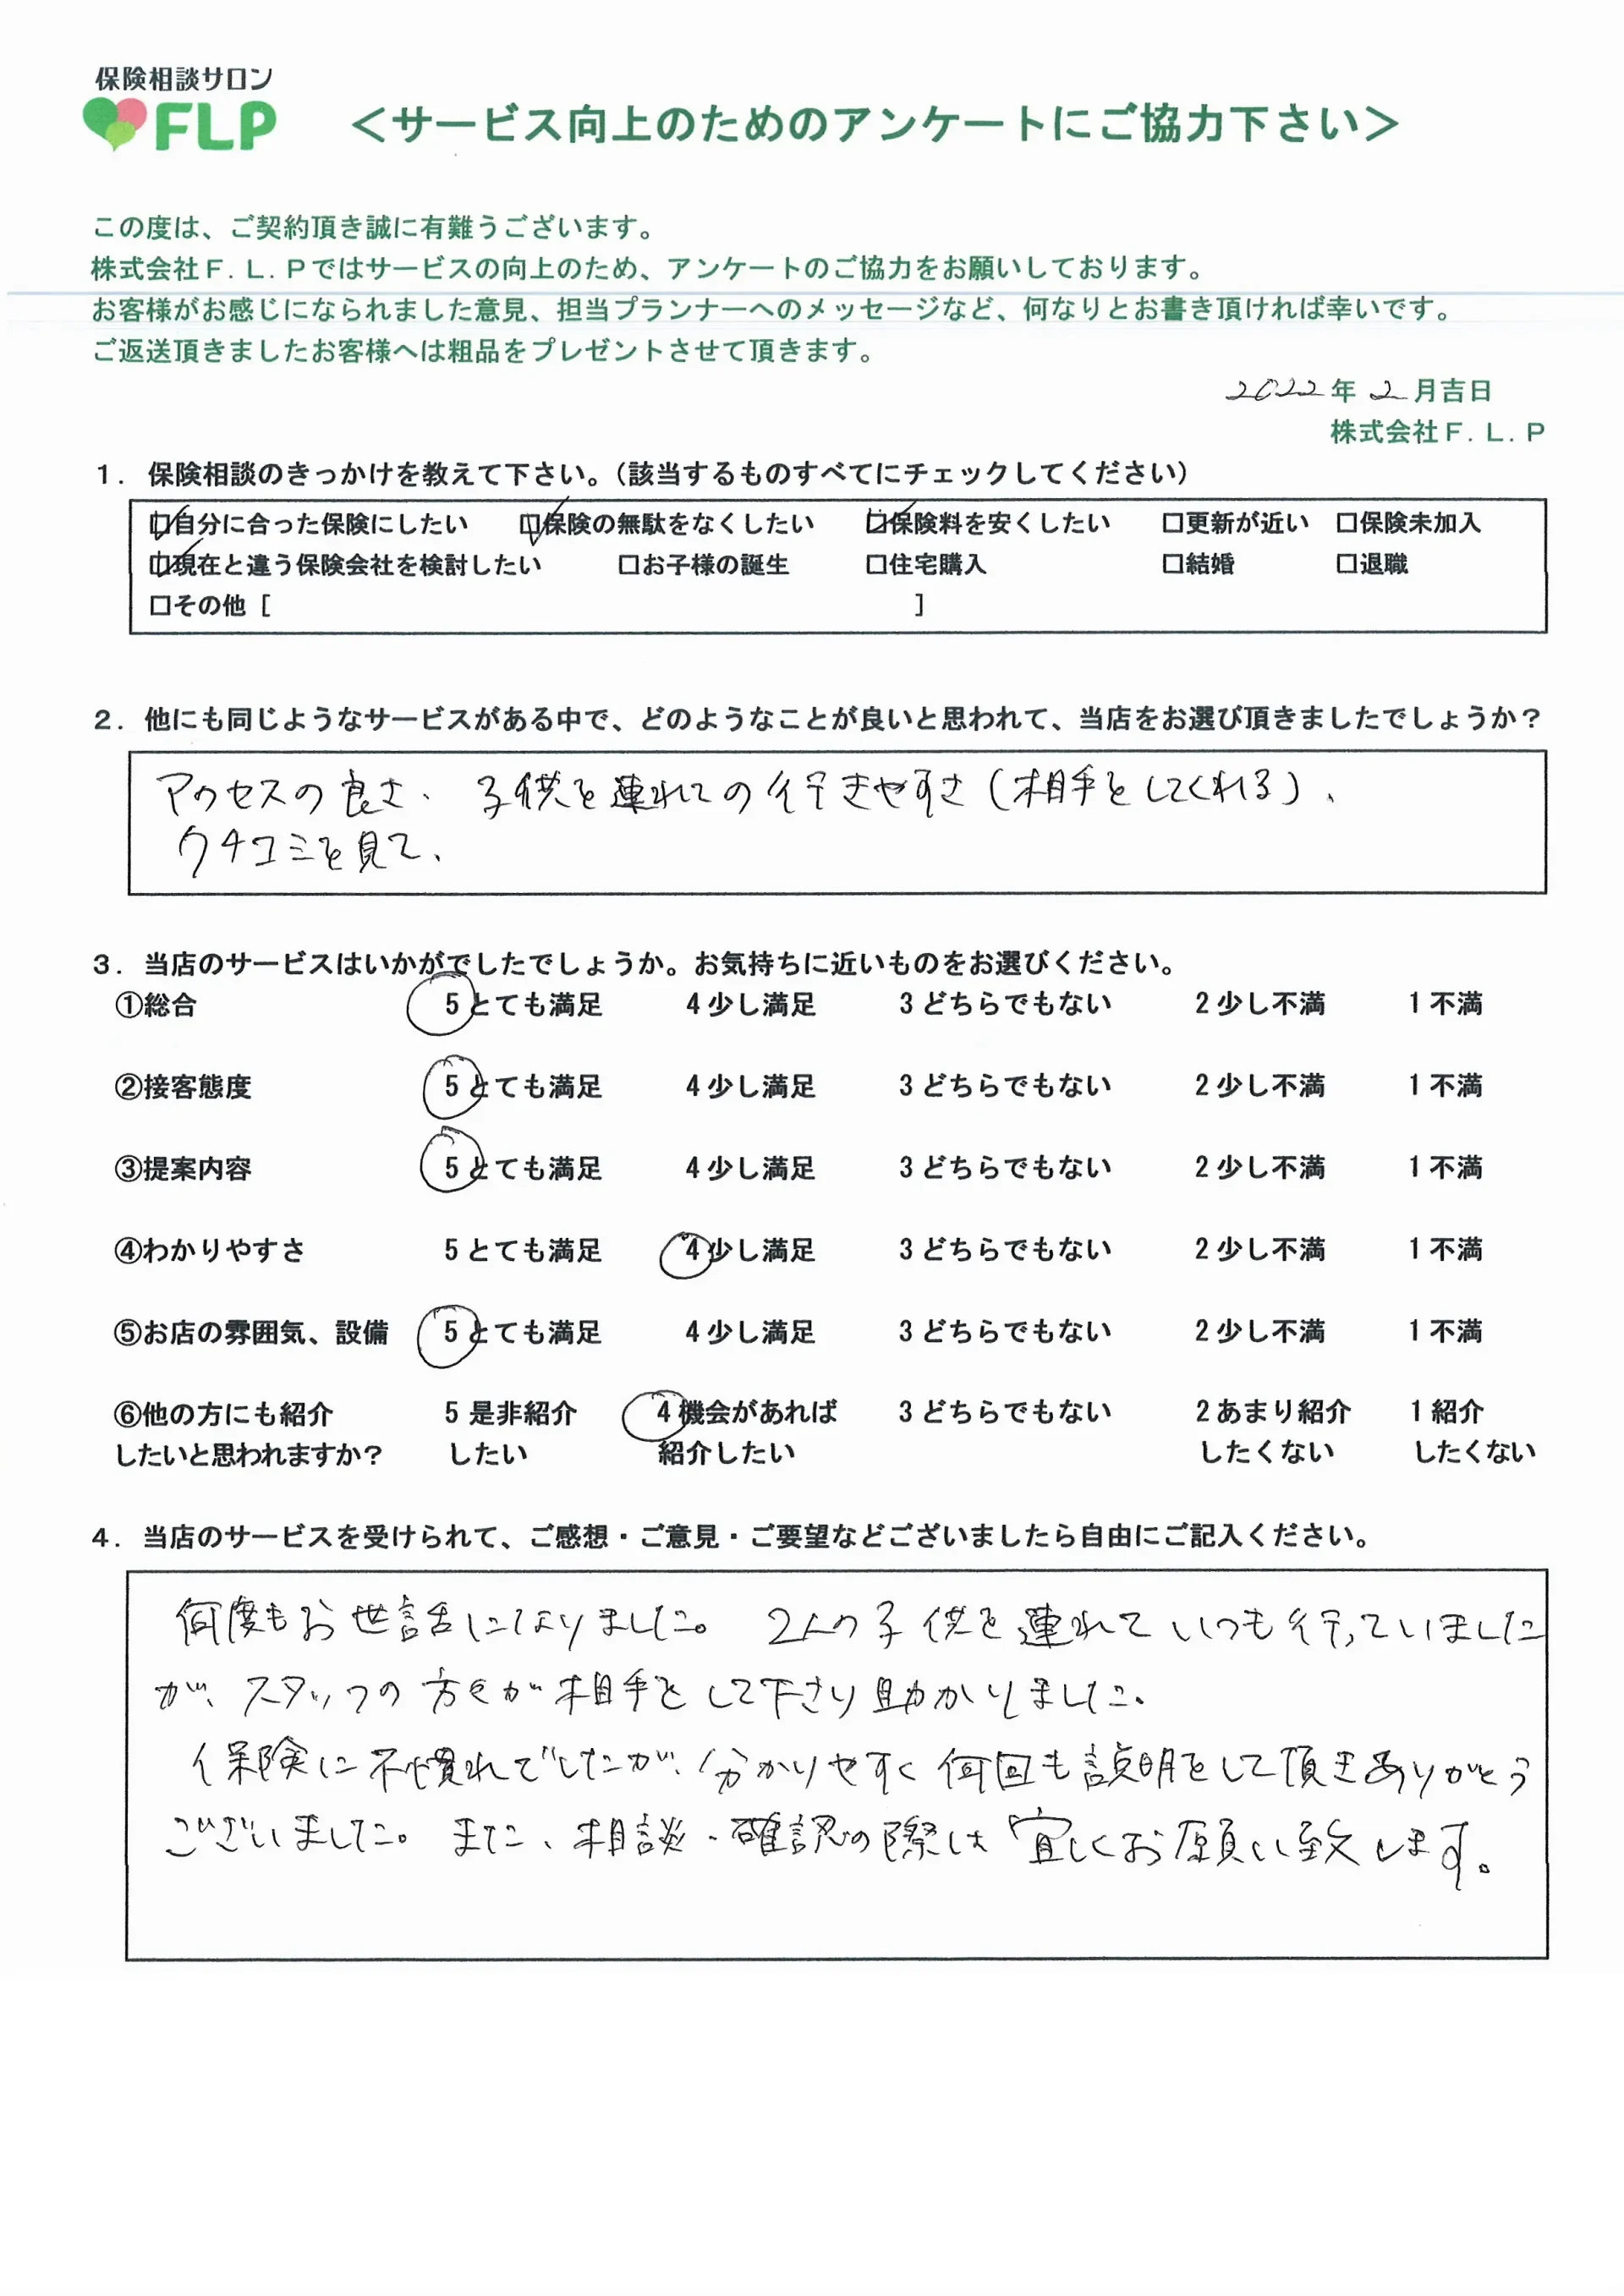 保険相談サロン
FLP
＜サービス向上のためのアンケートにご協力下さい＞
この度は、ご契約頂き誠に有難うございます。
株式会社Ｆ．Ｌ．Ｐではサービスの向上のため、アンケートのご協力をお願いしております。
お客様がお感じになられました意見、担当プランナーへのメッセージなど、何なりとお書き頂ければ幸いです。
ご返送頂きましたお客様へは粗品をプレゼントさせて頂きます。
2022年 2月吉日
株式会社Ｆ．Ｌ．Ｐ
１．保険相談のきっかけを教えて下さい。（該当するものすべてにチェックしてください）
☑自分に合った保険にしたい ☑保険の無駄をなくしたい ☑保険料を安くしたい □更新が近い □保険未加入
☑現在と違う保険会社を検討したい □お子様の誕生 □住宅購入 □結婚 □退職
□その他［ ］
２．他にも同じようなサービスがある中で、どのようなことが良いと思われて、当店をお選び頂きましたでしょうか？
アクセスの良さ、子供を連れての行きやすさ（相手をしてくれる）、
クチコミを見て、
３．当店のサービスはいかがでしたでしょうか。お気持ちに近いものをお選びください。
①総合 5 とても満足 4 少し満足 3 どちらでもない 2 少し不満 1 不満
②接客態度 5 とても満足 4 少し満足 3 どちらでもない 2 少し不満 1 不満
③提案内容 5 とても満足 4 少し満足 3 どちらでもない 2 少し不満 1 不満
④わかりやすさ 5 とても満足 4 少し満足 3 どちらでもない 2 少し不満 1 不満
⑤お店の雰囲気、設備 5 とても満足 4 少し満足 3 どちらでもない 2 少し不満 1 不満
⑥他の方にも紹介 5 是非紹介 4 機会があれば 3 どちらでもない 2 あまり紹介 1 紹介
したいと思われますか？ したい 紹介したい したくない したくない
４．当店のサービスを受けられて、ご感想・ご意見・ご要望などございましたら自由にご記入ください。
何度もお世話になりました。2人の子供を連れていつも行っていました
が、スタッフの方々が相手をして下さり助かりました。
保険に不慣れでしたが、分かりやすく何回も説明をして頂きありがとう
ございました。また、相談・確認の際は宜しくお願い致します。